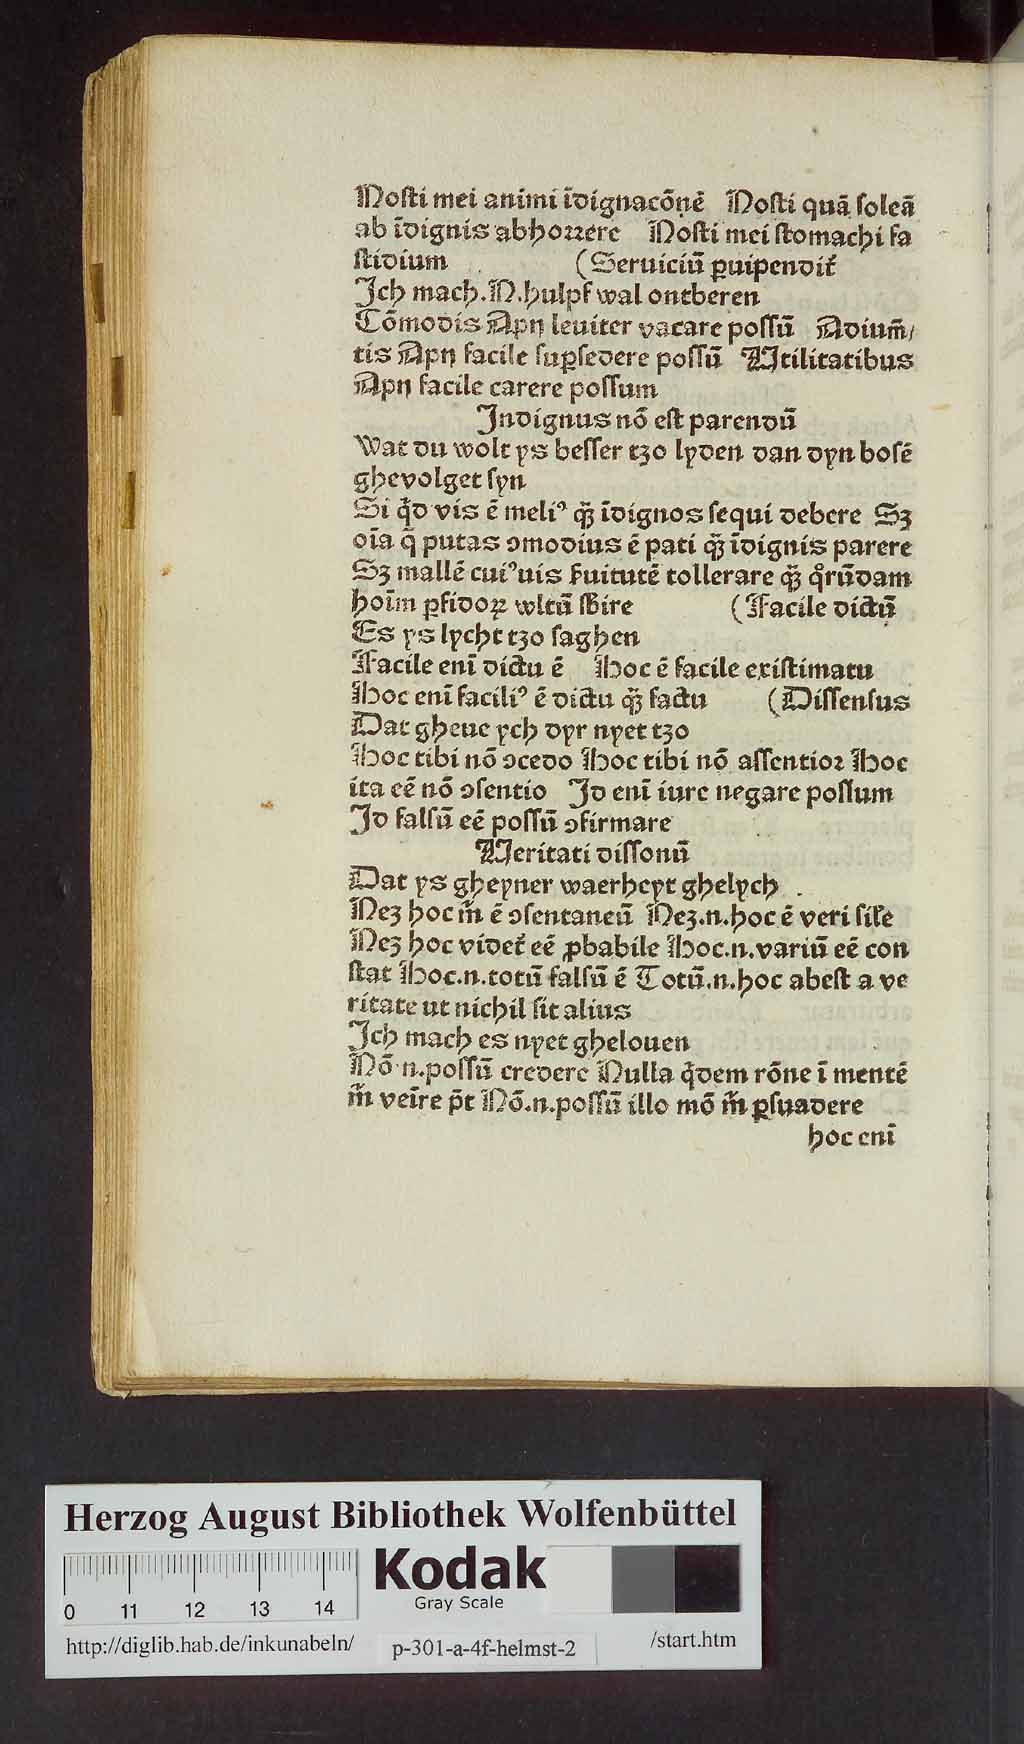 Nosti mei animi īdignacōnē Nosti quā soleā
ab īdignis abhorrere Nosti mei stomachi fa
stidium (Seruiciū ꝑuipendit᷑
Ich mach.N.hulpf wal ontberen
Cōmodis Apn leuiter vacare possū Adium̄/
tis Apn facile suꝑsedere possū Vtilitatibus
Apn facile carere possum
Indignus nō est parendū
Wat du wolt ys besser tzo lyden dan dyn bosē
ghevolget syn
Si qͥd vis ē meliꝰ qꝫ̄ īdignos sequi debere Sꝫ
oīa q̄ putas ɔmodius ē pati qꝫ̄ īdignis parere
Sꝫ mallē cuiꝰuis ẜuitutē tollerare qꝫ̄ qͦrūdam
hoīm ꝑfidoꝝ wltū sbire (Facile dictū
Es ys lycht tzo saghen
Facile enī dictu ē Hoc ē facile existimatu
Hoc enī faciliꝰ ē dictu qꝫ̄ factu (Dissensus
Dat gheue ych dyr nyet tzo
Hoc tibi nō ɔcedo Hoc tibi nō assentior Hoc
ita eē nō ɔsentio Id enī iure negare possum
Id falsū eē possū ɔfirmare
Veritati dissonū
Dat ys gheyner waerheyt ghelych
Neꝫ hoc m̄ ē ɔsentaneū Neꝫ.n.hoc ē veri sil̄e
Neꝫ hoc videt᷑ eē ꝓbabile Hoc.n.variū eē con
stat Hoc.n.totū falsū ē Totū.n.hoc abest a ve
ritate ut nichil sit alius
Ich mach es nyet ghelouen
Nō.n.possū credere Nulla qͥdem rōne ī mentē
m̄ veīre p̄t Nō.n.possū illo mō m̄ ꝑsuadere
hoc enī
Herzog August Bibliothek Wolfenbüttel
Kodak
Gray Scale
0 11 12 13 14
http://diglib.hab.de/inkunabeln/ p-301-a-4f-helmst-2 /start.htm